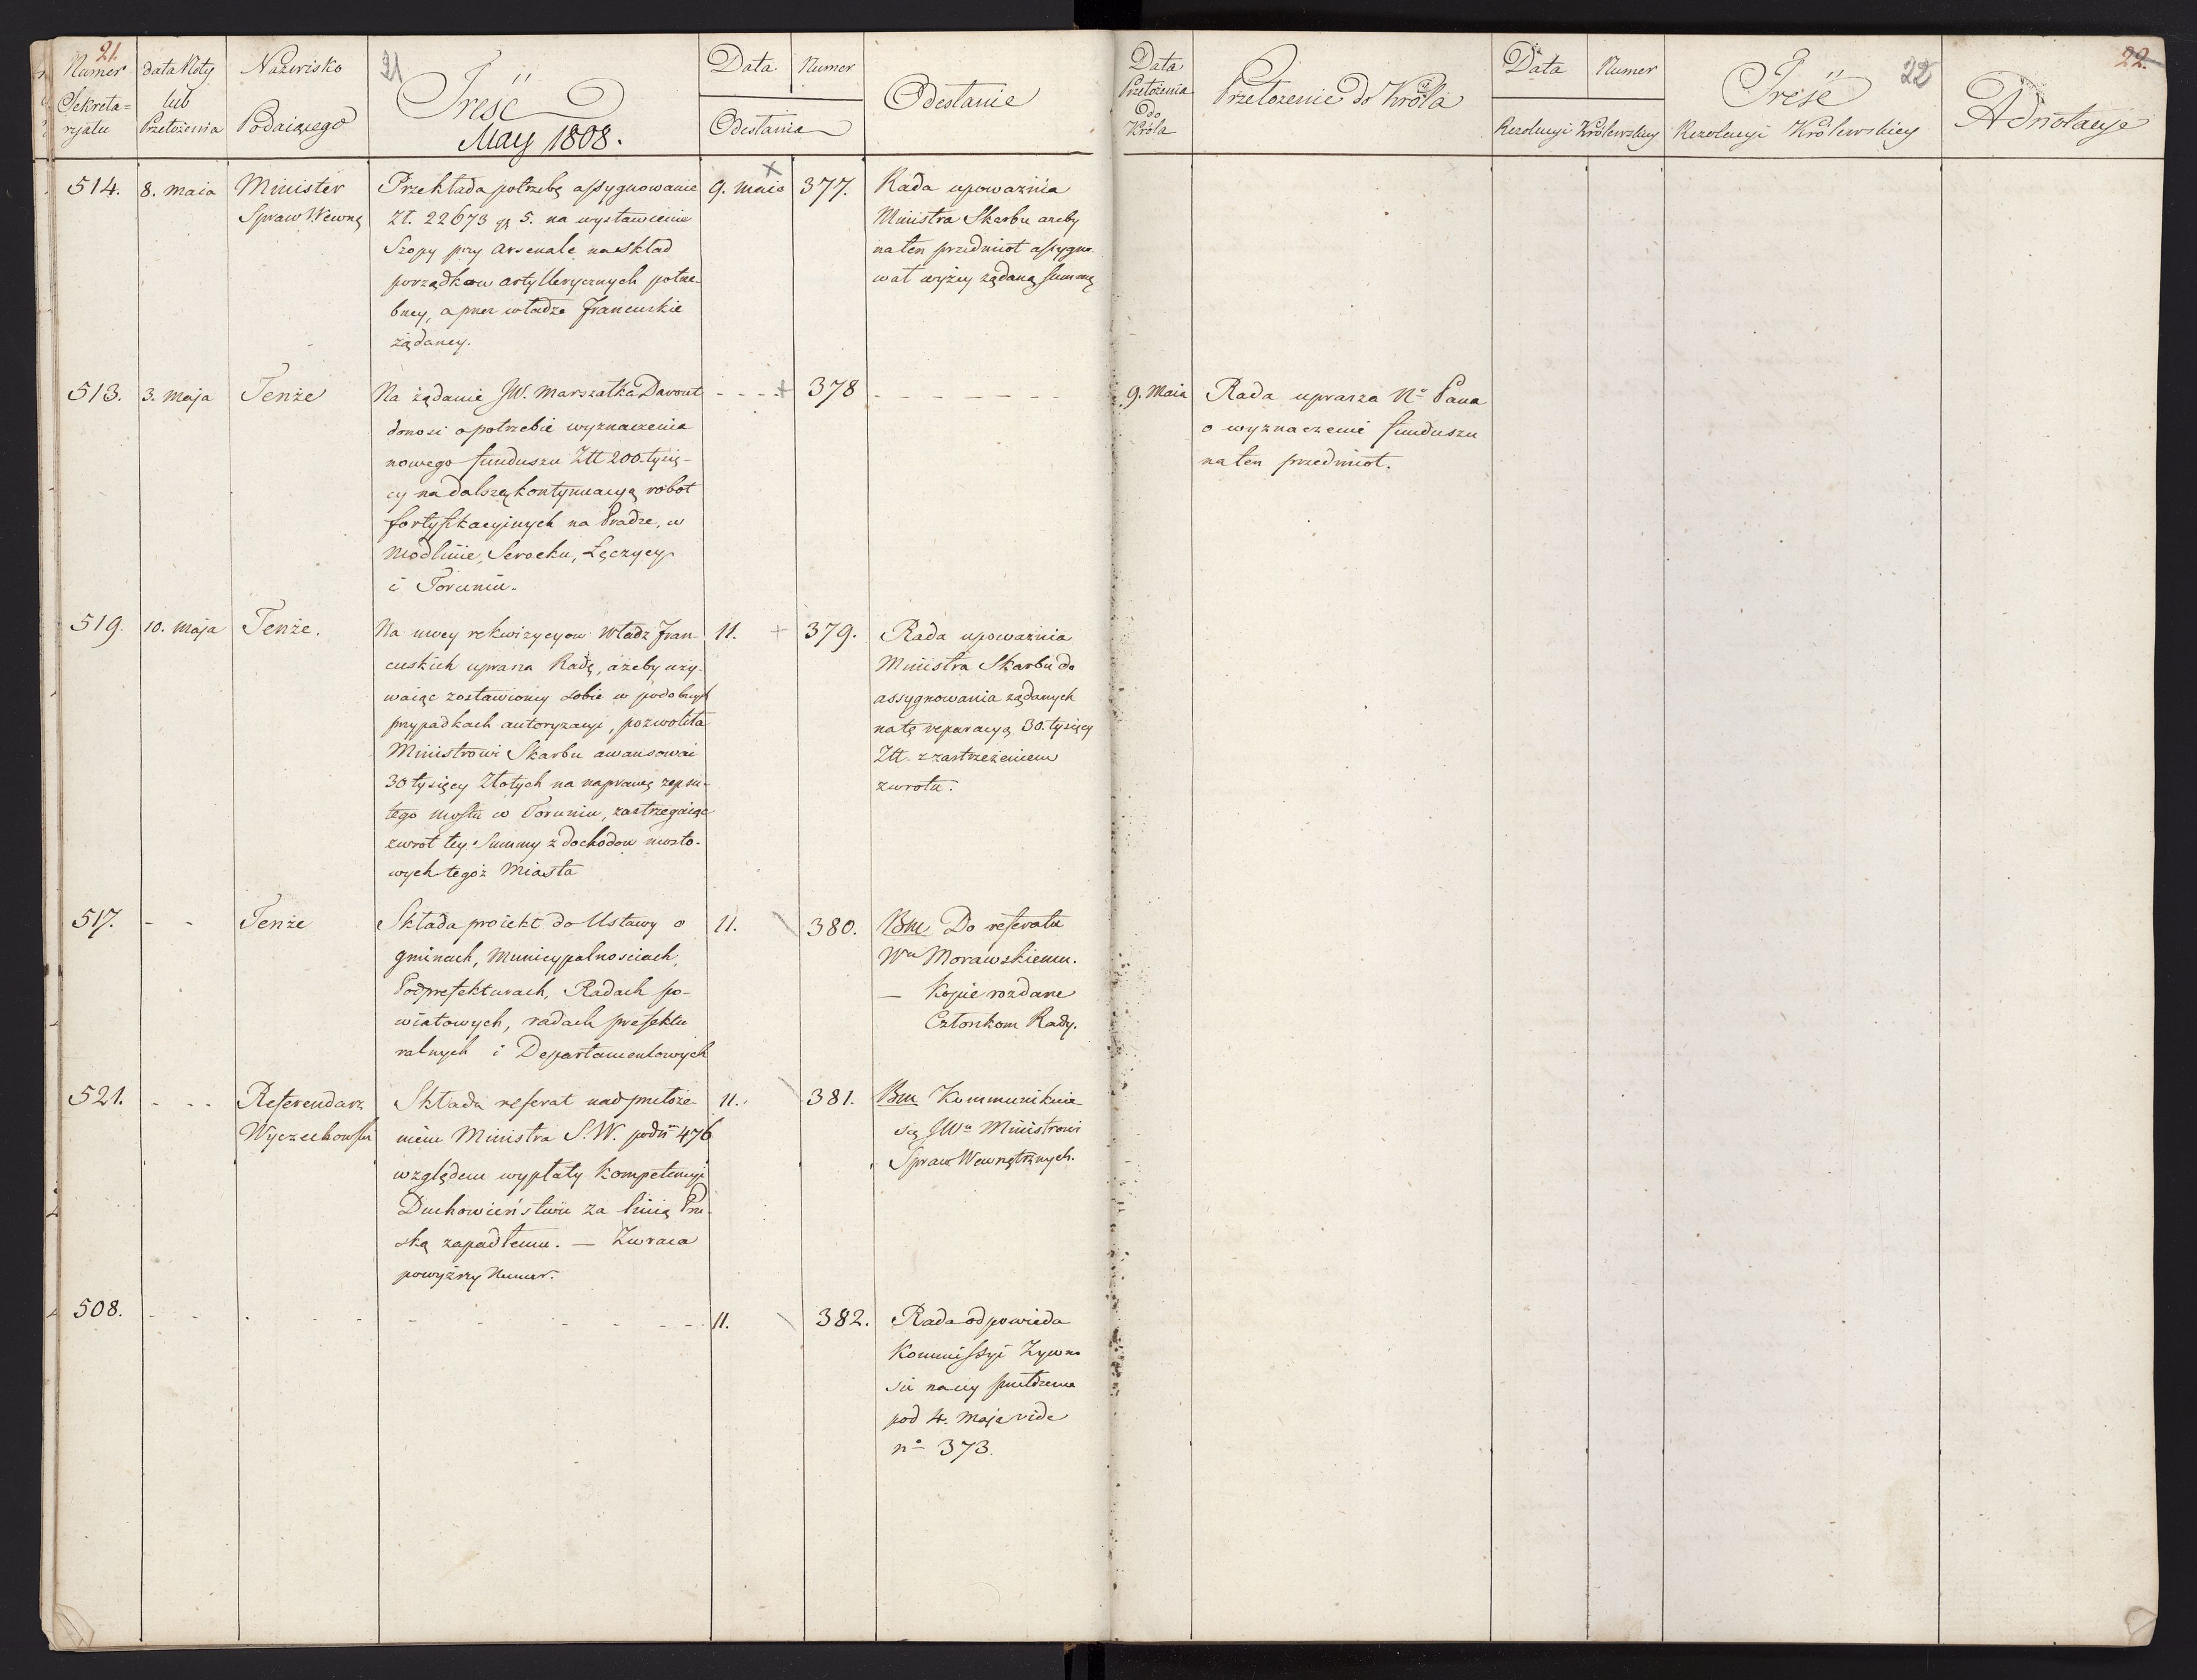 21.
Numer
Sekreta=
ryatu
data Noty
lub
Przełożenia
Nazwisko
Podaiącego
21
Treść
May 1808.
Data
Numer
Odesłania
Odesłanie
514.
8. maia
Minister
Spraw Wewnę
Przekłada potrzebę assygnowania
Zł. 22673 gr 5. na wystawienie
Szopy przy Arsenale na skład
porządkow artyllerycznych potrze-
bney, a przez władze francuskie
żądaney.
9. maia
377.
Rada upoważnia
Ministra Skarbu ażeby
na ten przedmiot assygno
wał wyżey żądaną summę
513.
3. maja
Tenże
Na żądanie JW. Marszałka Davout
donosi o potrzebie wyznaczenia
nowego funduszu Złł 200-tysię-
cy na dalszą kontynuacyą robot
fortyfikacyinych na Pradze, w
Modlinie, Serocku, Łęczycy
i Toruniu.
- - -
378
- - - - - - -
519.
10. maja
Tenże.
Na mocy rekwizycyow władz fran-
cuskich uprasza Radę, ażeby uży-
waiąc zostawioney sobie w podobnych
przypadkach autoryzacyi, pozwoliła
Ministrowi Skarbu awansować
30 tysięcy Złotych na naprawę zepsu-
tego mostu w Toruniu, zastrzegaiąc
zwrot tey Summy z dochodow mosto-
wych tegoż Miasta
11.
379.
Rada upoważnia
Ministra Skarbu do
assygnowania żądanych
na tę reparacyą 30. tysięcy
Złł. z zastrzeżeniem
zwrotu.
517.
- -
Tenże
Składa proiekt do Ustawy o
gminach, Municypalnosciach,
Podprefekturach, Radach po-
wiatowych, radach prefektu
ralnych i Departamentowych
11.
380.
Bm Do referatu
Wu Morawskiemu.
— Kopie rozdane
Członkom Rady.
521.
- - -
Referendarz
Wyczechowski
Składa referat nad przełoże-
niem Ministra S. W. pod no 476
względem wypłaty kompetencyi
Duchowieństwu za linią Pru-
ską zapadłemu. — Zwraca
powyższy Numer.
11.
381.
Bm Kommunikuie
się JWu Ministrowi
Spraw Wewnętrznych.
508.
- - - - - - - - -
11.
382.
Rada odpowiada
Kommissyi Żywno
sci na iey
pod 4. Maja vide
no 373.
Data
Przełożenia
do
Króla
Przełożenie do Króla
Data
Numer
Rezolucyi Królewskiey
Treść
Rezolucyi Królewskiey
22
22.
Adnotacye
9. Maia
Rada uprasza No Pana
o wyznaczenie funduszu
na ten przedmiot.